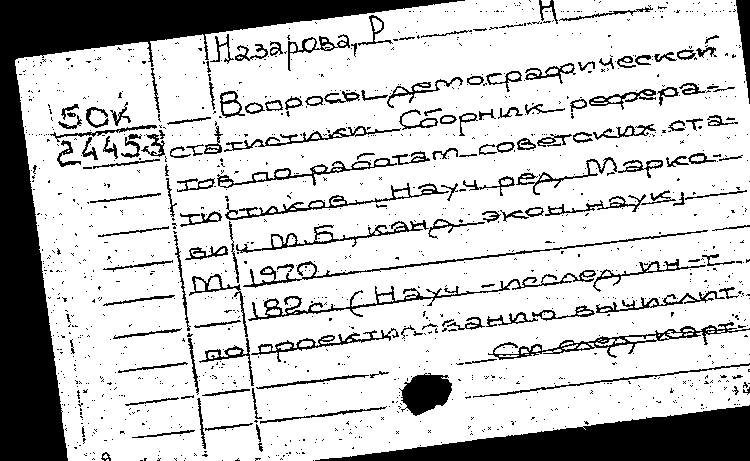 Назарова, Р Н
50к
24453
Вопросы демографической
статистики. Сборник рефера-
тов по работам советских ста-
тистиков. Науч. ред. Марко-
вич М.Б., канд. экон. наук,.
М. 1970.
182с. (Науч.-исслед. ин-т
по проектированию вычислит.
См след. карт.